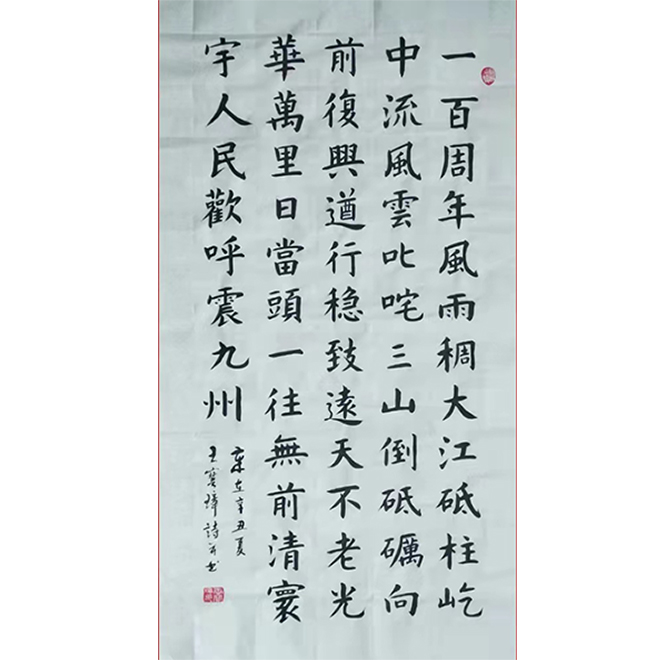 一百周年風雨稠大江砥柱屹
中流風雲叱咤三山倒砥礪向
前復興道行稳致遠天不老光
華萬里日當頭一往無前清寰
宇人民歡呼震九州
歲在辛丑夏
王璋詩并书